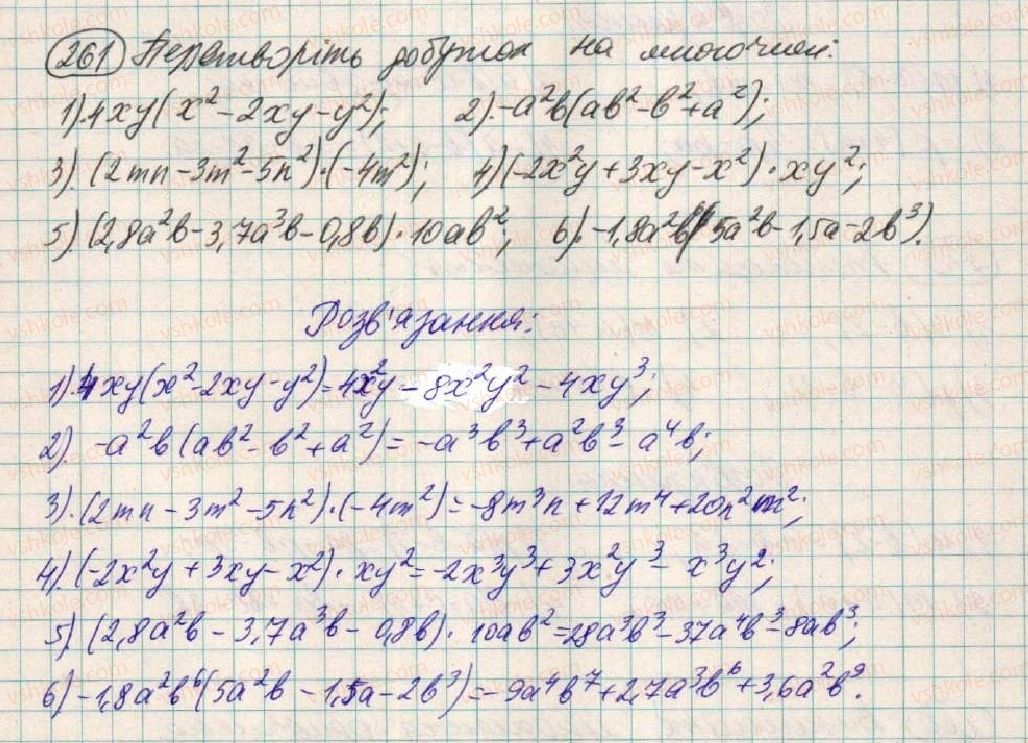 261 Перетворіть добуток на многочлен:
1). 4xy(x²-2xy-y²); 2). -a²b(ab²-b²+a²);
3). (2mn-3m²-5n²)·(-4m²); 4) (-2x²y+3xy-x²)·xy²;
5) (2,8a²b-3,7a³b-0,8b)·10ab²; 6). -1,8a²b⁶(5a²b-1,5a-2b³).
Розв'язання:
1). 4xy(x²-2xy-y²)=4x²y-8x²y²-4xy³;
2). -a²b(ab²-b²+a²)=-a³b³+a²b³-a⁴b;
3). (2mn-3m²-5n²)·(-4m²)=-8m³n+12m⁴+20n²m²;
4). (-2x²y+3xy-x²)·xy²=-2x³y³+3x²y³-x³y²;
5) (2,8a²b-3,7a³b-0,8b)·10ab²=28a³b³-37a⁴b³-8ab³;
6) -1,8a²b⁶(5a²b-1,5a-2b³)=-9a⁴b⁷+2,7a³b⁶+3,6a²b⁹.